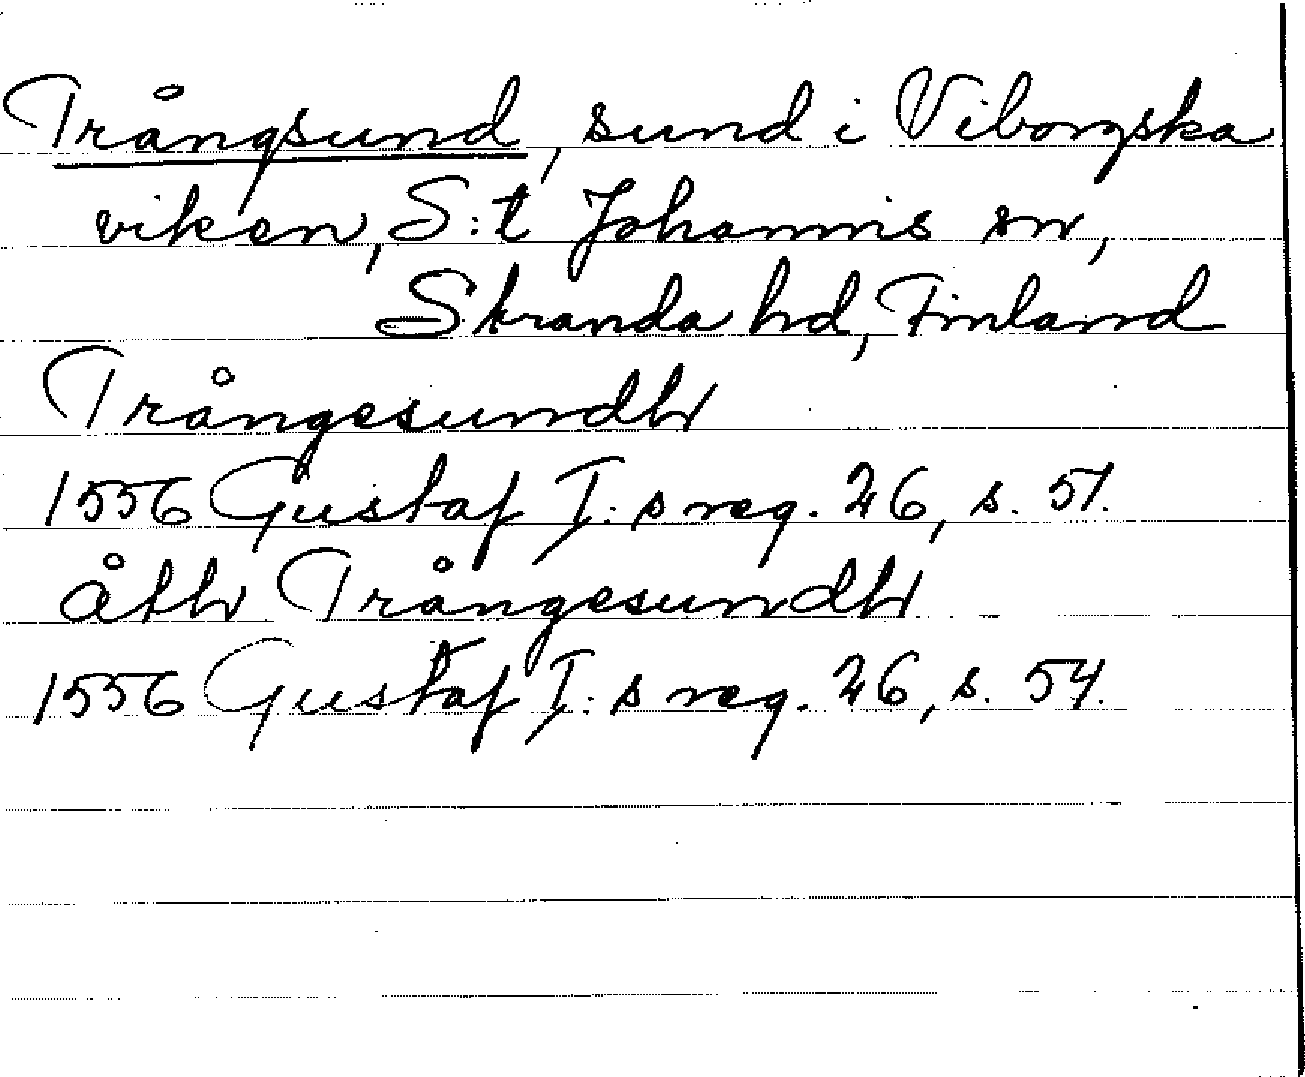 Trångsund, sund i Viborgska
viken, S:t Johannis sn,
Stranda hd, Finland
Trångesundh
1556 Gustaf I:s reg. 26, s. 51.
åth Trångesundh
1556 Gustaf I:s reg. 26, s. 54.